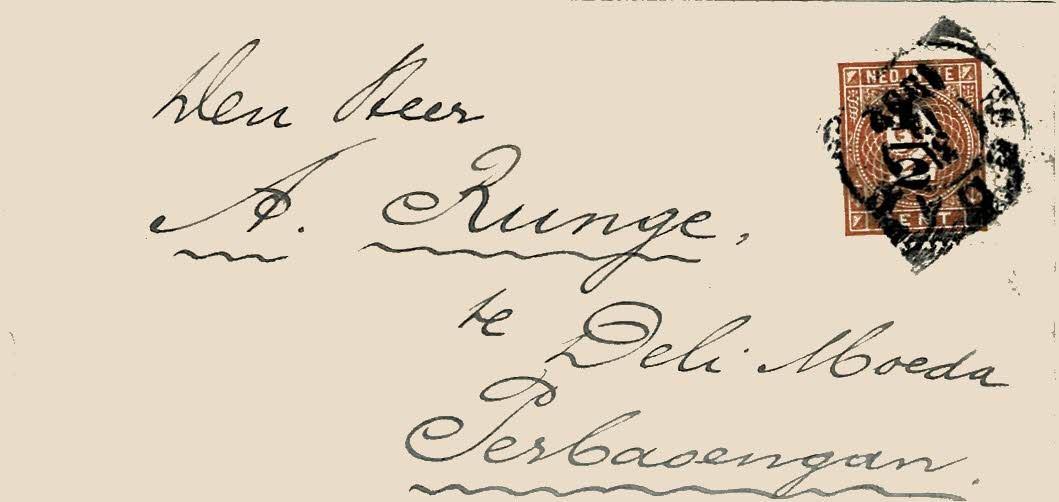 Den Heer
A. Runge,
te Deli Moeda
Perbaoengan.
NED.INDIE
2
CENT.